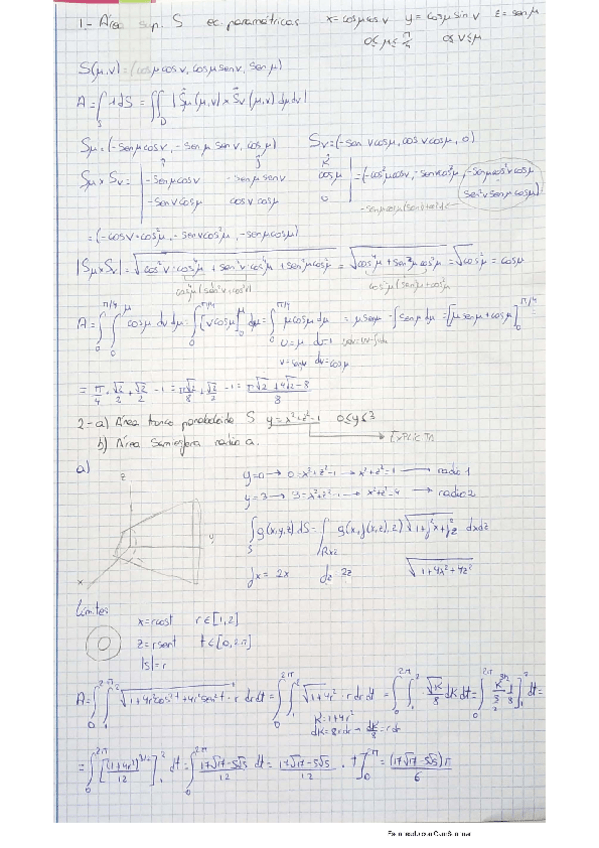 1.- Área sup. S ec. paramétricas x=cosμcosv y=cosμsinv z=senμ
0≤μ≤π/4 0≤v≤μ
S(μ,v)=(cosμcosv, cosμsenv, senμ)
A=∫_S 1dS = ∬_D |Sμ(μ,v)×Sv(μ,v)dμdv|
Sμ=(-senμcosv, -senμsenv, cosμ) Sv=(-senvcosμ, cosvcosμ, 0)
Sμ×Sv= | -senμcosv -senμsenv cosμ |
| -senvcosμ cosvcosμ 0 |
=(-cosv·cos²μ, -senvcos²μ, -senμcosμ)
|Sμ×Sv|=√(cos²v·cos⁴μ + sen²vcos⁴μ + sen²μcos²μ) = √(cos⁴μ+sen²μcos²μ) = √cos²μ = cosμ
cos⁴μ(sen²v+cos²v) cos²μ(sen²μ+cos²μ)
A=∫₀^{π/4}∫₀^μ cosμ dv dμ = ∫₀^{π/4}[vcosμ]₀^μ dμ = ∫₀^{π/4} μcosμ dμ = μsenμ - ∫senμ dμ = [μsenμ+cosμ]₀^{π/4} =
= π/4·√2/2+√2/2 -1 = π√2/8+√2/2 -1 = (π√2+4√2-8)/8
2.- a) Área tronco paraboloide S y=x²+z²-1 0≤y≤3
EXPLICITA
b) Área Semiesfera radio a.
a)
z
y
x
y=0 → 0=x²+z²-1 → x²+z²=1 → radio 1
y=3 → 3=x²+z²-1 → x²+z²=4 → radio 2
∫_S g(x,y,z)dS = ∫_{Rxz} g(x,f(x,z),z)√(1+f²x+f²z) dxdz
fx= 2x fz 2z √(1+4x²+4z²)
Límites
x=rcost r∈[1,2]
z=rsent t∈[0,2π]
|s|=r
A=∫₀^{2π}∫₁² √(1+4r²cos²t+4r²sen²t)·r drdt = ∫₀^{2π}∫₁² √(1+4r²)·rdrdt = ∫₀^{2π}∫₁² √K/8 dKdt = ∫₀^{2π} [K^{3/2}/(3/2)·1/8]₁² dt=
K=1+4r²
dK=8rdr → dK/8=rdr
=∫₀^{2π} [(1+4r²)^{3/2}/12]₁² dt = ∫₀^{2π} (17√17-5√5)/12 dt = (17√17-5√5)/12 · t]₀^{2π} = (17√17-5√5)π/6